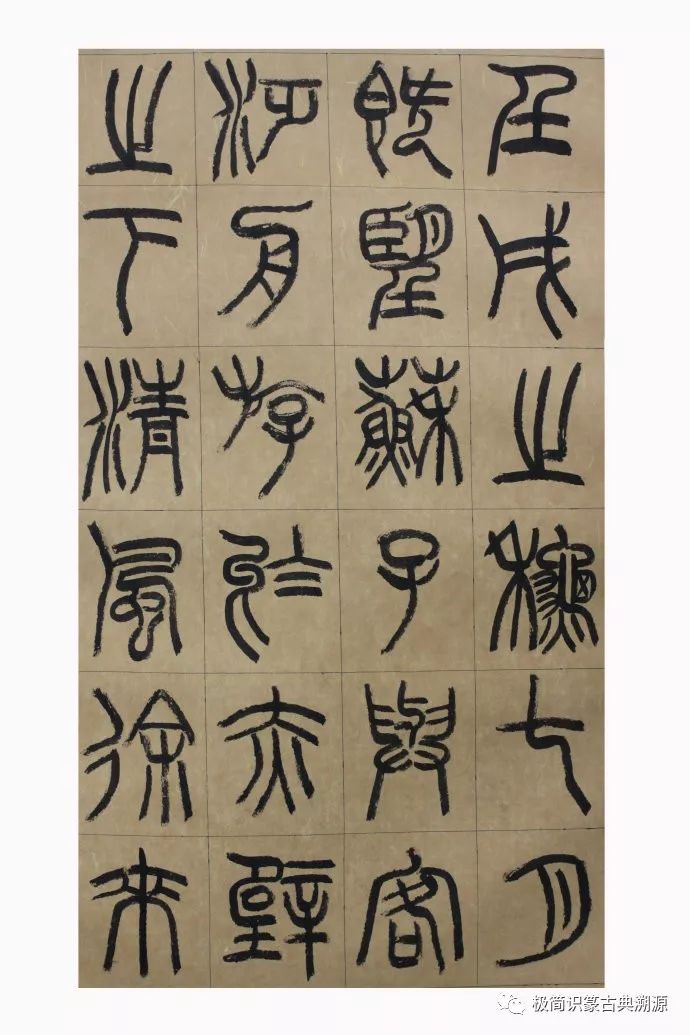 壬戌之秋七月
既望蘇子與客
泛舟斿於赤壁
之下清風徐來
极简识篆古典溯源